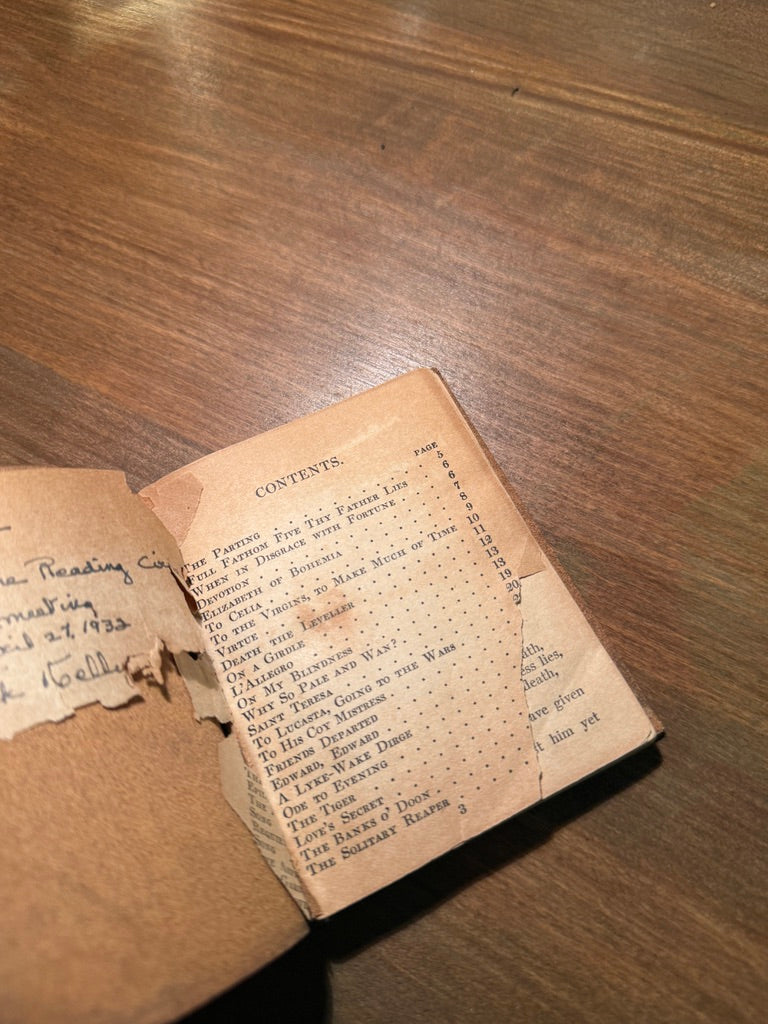 Reading Cir
meeting
ril 27, 1932
Kelly
CONTENTS.
PAGE
THE PARTING . . . . . 5
FULL FATHOM FIVE THY FATHER LIES . . 6
WHEN IN DISGRACE WITH FORTUNE . . . 6
DEVOTION . . . . . 7
ELIZABETH OF BOHEMIA . . . . . 8
TO CELIA . . . . . 9
TO THE VIRGINS, TO MAKE MUCH OF TIME 10
VIRTUE . . . . . 11
DEATH THE LEVELLER . . . . . 12
ON A GIRDLE . . . . . 13
L'ALLEGRO . . . . . 13
ON MY BLINDNESS . . . . . 19
WHY SO PALE AND WAN? . . . . . 20
SAINT TERESA . . . . . 2
TO LUCASTA, GOING TO THE WARS . . .
TO HIS COY MISTRESS . . . . .
FRIENDS DEPARTED . . . . .
EDWARD, EDWARD . . . . .
A LYKE-WAKE DIRGE . . . . .
ODE TO EVENING . . . . .
THE TIGER . . . . .
LOVE'S SECRET . . . . .
THE BANKS O' DOON . . . . .
THE SOLITARY REAPER . . . . .
3
ath,
ss lies,
death,
ave given
t him yet